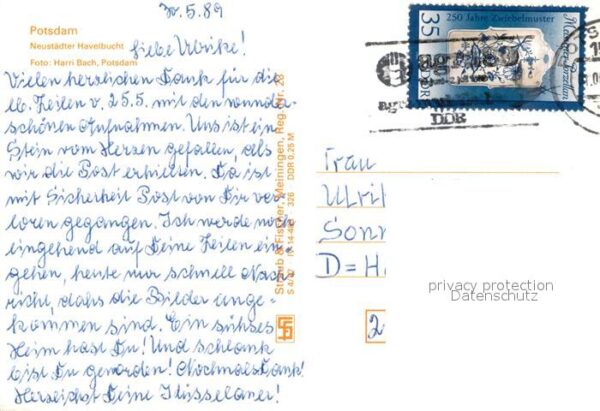 30.5.89
Potsdam
Neustädter Havelbucht
Foto: Harri Bach, Potsdam
Liebe Ulrike!
Vielen herzlichen Dank für die
lb. Zeilen v. 25.5. mit den wunder-
schönen Aufnahmen. Uns ist ein
Stein vom Herzen gefallen, als
wir die Post erhielten. Da ist
mit Sicherheit Post von Dir ver
loren gegangen. Ich werde noch
eingehend auf Deine Zeilen ein-
gehen, heute nur schnell Nach
richt, dahs die Bilder ange-
kommen sind. Ein sühses
Heim hast Du! Und schlank
bist Du geworden! Nochmals Dank!
Herzlichst Deine
Straub & Fischer, Meiningen, Reg.-Nr. 28
326 DDR 0,25 M
250 Jahre Zwiebelmuster
Meissener Porzellan
35
DDR
DDR
Frau
Ulri
Sonn
D=H
2
privacy protection
Datenschutz